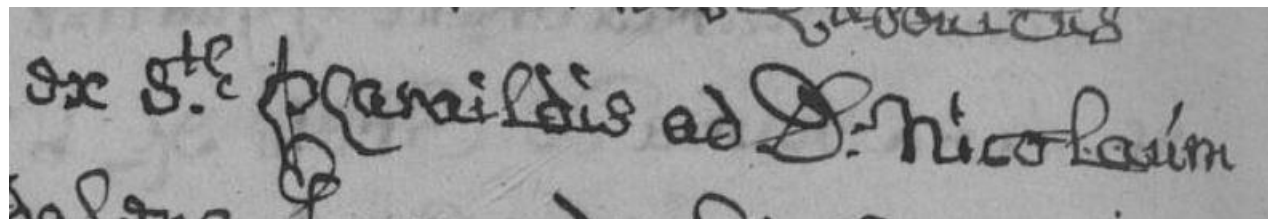 ex S.te Pharaildis ad D. Nicolaúm